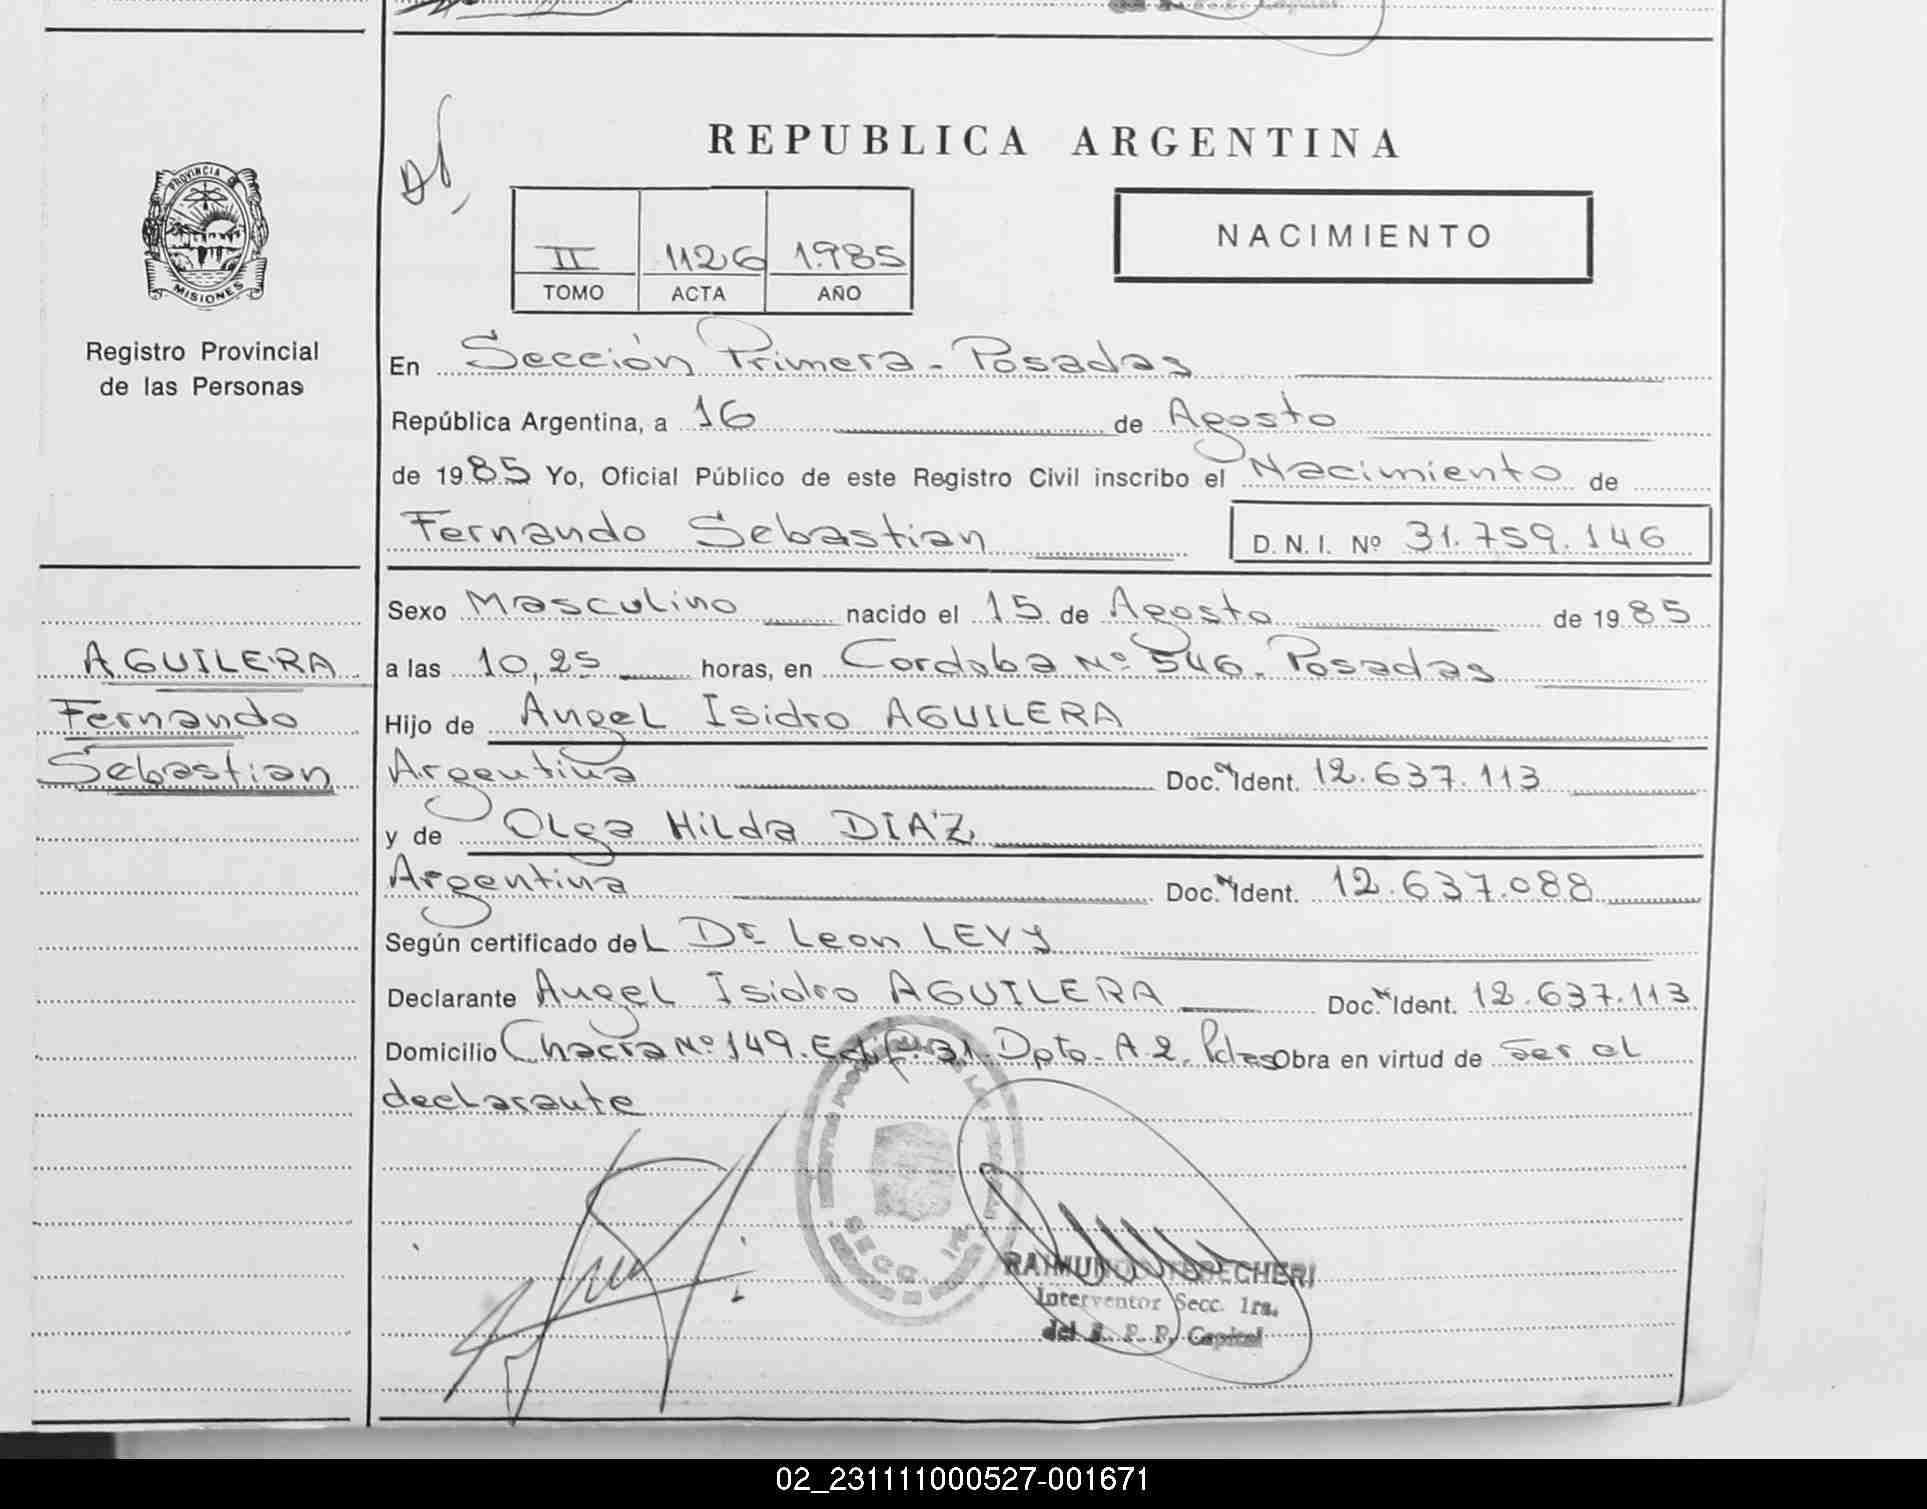 REPUBLICA ARGENTINA
PROVINCIA DE
MISIONES
Registro Provincial
de las Personas
II 1126 1.985
TOMO ACTA AÑO
NACIMIENTO
En Sección Primera - Posadas
República Argentina, a 16 de Agosto
de 1985 Yo, Oficial Público de este Registro Civil inscribo el Nacimiento de
Fernando Sebastian D.N.I. Nº 31.759.146
Sexo Masculino nacido el 15 de Agosto de 1985
AGUILERA
Fernando
Sebastian
a las 10,25 horas, en Cordoba Nº 546. Posadas
Hijo de Angel Isidro AGUILERA
Argentina Doc. Ident. 12.637.113
y de Olga Hilda DIAZ
Argentina Doc. Ident. 12.637.088
Según certificado del Dr Leon LEVY
Declarante Angel Isidro AGUILERA Doc. Ident. 12.637.113
Domicilio Chacra Nº 149. Edif. 31. Dpto. A 2. Pdas Obra en virtud de ser el
declarante
SECC. 1ra.
Interventor Secc. 1ra.
del R. P. P. Capital
02_231111000527-001671